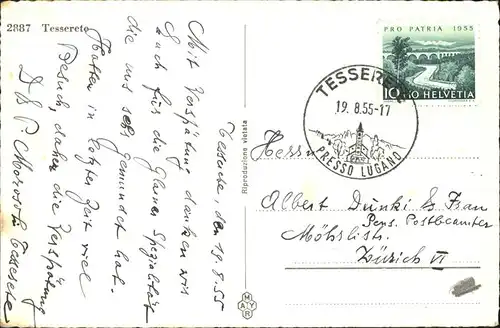 2887 Tesserete
Tesserete, den 19.8.55
Mit Verspätung danken wir
Euch für die Glarner Spezialität
die uns sehr gemundet hat.
Hatten in letzter Zeit viel
Besuch, daher die Verspätung
Tesserete
Riproduzione vietata
MAYR
PRO PATRIA 1955
10+10 HELVETIA
TESSERETE
19.8.55-17
PRESSO LUGANO
Herrn
Albert Dünki & Frau
Pens. Postbeamter
Möhrlistr.
Zürich VI